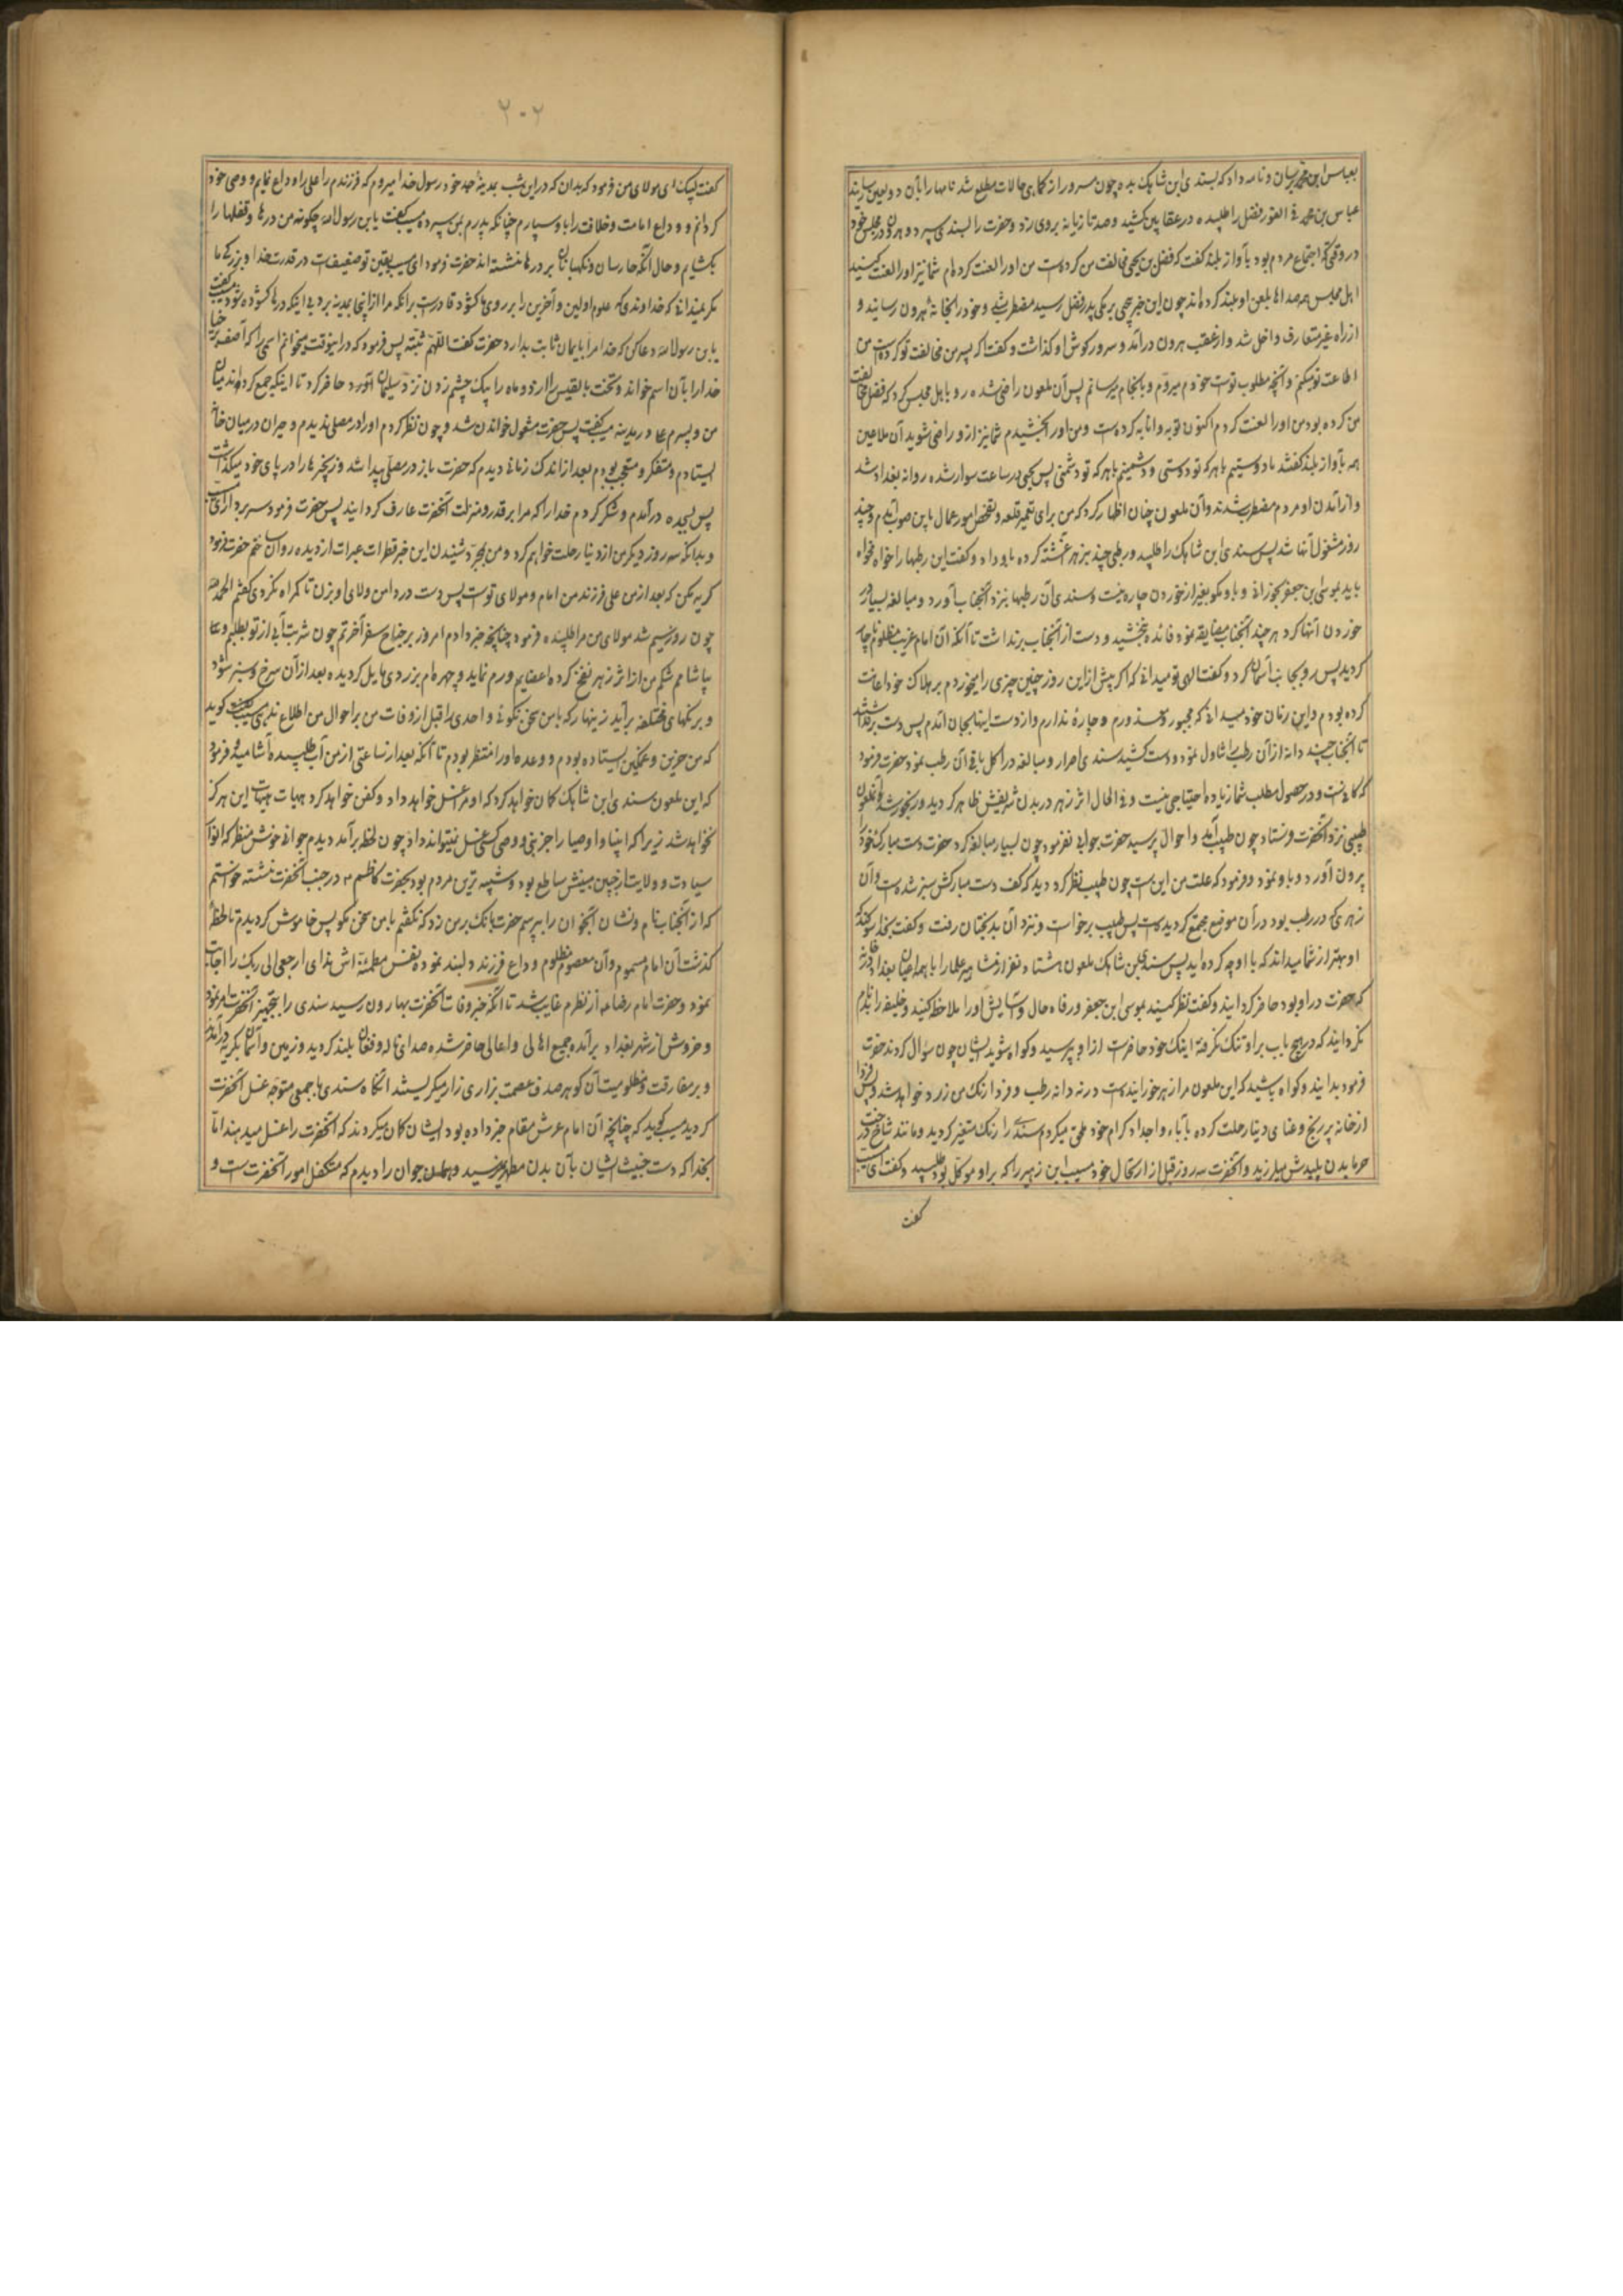 بعباس ابن محمد برسان و نامه داد که بسندی ابن شاهک بده چون مسرور از کماهی حالات مطلع شد نامها را بآن دو لعین رسانید
عباس بن محمد فی الفور فضل را طلبیده در عقابین کشید و صد تازیانه بروی زد و حضرت را بسندی سپرد و هرون در مجلس خود
در وقتی که اجتماع مردم بود بآواز بلند گفت که فضل بن یحیی مخالفت من کرده است من او را لعنت کرده ام شما نیز او را لعنت کنید
اهل مجلس همه صداها بلعن او بلند کرده اند چون این خبر بیحیی برمکی پدر فضل رسید مضطرب شد و خود را بخانه هرون رسانید و
از راه غیر متعارف داخل شد و از عقب هرون درآمد و سر در گوش او گذاشت و گفت اگر پسر من مخالفت تو کرده است من
اطاعت تو میکنم و آنچه مطلوب تو است خودم میروم و بانجام میرسانم پس آن ملعون راضی شده رو باهل مجلس کرد که فضل مخالفت
من کرده بود من او را لعنت کردم اکنون توبه و انابه کرده است و من او را بخشیدم شما نیز از و راضی شوید آن ملاعین
همه بآواز بلند گفتند ما دوستیم با هر که تو دوستی و دشمنیم با هر که تو دشمنی پس یحیی در ساعت سوار شده روانه بغداد شد
و از آمدن او مردم مضطرب شدند و آن ملعون چنان اظهار کرد که من برای تعمیر قلعه و تفحص امور عمال باین صوب آمدم و چند
روز مشغول آنها شد پس سندی ابن شاهک را طلبید و رطبی چند بزهر آغشته کرده باو داد و گفت این رطبها را خواه نخواه
باید بموسی ابن جعفر بخورانی و باو بگو بغیر از خوردن چاره نیست و سندی آن رطبها بنزد آنجناب آورد و مبالغه بسیار در
خوردن آنها کرد هر چند آنجناب مضایقه نمود فائده نبخشید و دست از آنجناب برنداشت تا آنکه آن امام غریب مظلوم ناچار
گردید پس رو بجانب آسمان کرد و گفت الهی تو میدانی که اگر پیش از این روز چنین چیزی را میخوردم بر هلاک خود اعانت
کرده بودم و این زمان خود میدانی که مجبور و معذورم و چاره ندارم و از دست اینها بجان آمدم پس دست برداشتند
تا آنجناب چند دانه از آن رطب را تناول نمود و دست کشید سندی اصرار و مبالغه در اکل باقی آن رطب نمود حضرت فرمود
که کافی است و در حصول مطلب شما زیاده احتیاجی نیست و فی الحال اثر زهر در بدن شریفش ظاهر گردید و رنجور شد و آن ملعون
طبیبی نزد آنحضرت فرستاد چون طبیب آمد و احوال پرسید حضرت جوابی نفرمود چون بسیار مبالغه کرد حضرت دست مبارک خود را
برون آورد و باو نمود و فرمود که علت من این است چون طبیب نظر کرد دید که کف دست مبارکش سبز شده است و آن
زهری که در رطب بود در آن موضع مجتمع گردیده است پس طبیب برخواست و بنزد آن بدبختان رفت و گفت بخدا سوگند که
او بهتر از شما میداند که با او چه کرده اید پس سندی بن شاهک ملعون هشتاد نفر از مشاهیر علما را با همه اعیان بغداد در خانه
که حضرت در او بود حاضر گردانید و گفت نظر کنید بموسی ابن جعفر و رفاه حال و آسایش او را ملاحظه کنید و خلیفه را بدنام
نگردانید که در هیچ باب بر او تنک نگرفته اینک خود حاضر است از او بپرسید و گواه شوید ایشان چون سؤال کردند حضرت
فرمود بدانید و گواه باشید که این ملعون مرا زهر خورانیده است در نه دانه رطب و فردا رنک من زرد خواهد شد و پس فردا
از خانه پر رنج و عنای دینا رحلت کرده بآباء و اجداد کرام خود ملحق میگردم سندی را رنک متغیر گردید و مانند شاخ درخت
خرما بدن پلیدش میلرزید و آنحضرت سه روز قبل از ارتحال خود مسیب ابن زهیر را که بر او موکل بود طلبید و گفت ای مسیب
گفت
۲۰۲
گفت لبیک ای مولای من فرمود که بدان که در این شب بمدینه جد خود رسول خدا میروم که فرزندم را علی راه وداع نمایم و وصی خود
گردانم و وداع امامت و خلافت را باو سپارم چنانکه پدرم بمن سپرده مسیب گفت یابن رسول الله چگونه من درها و قفلها را
بگشایم و حال آنکه حارسان و نگهبانان بر درها نشسته اند حضرت فرمود ای مسیب یقین تو ضعیف است در قدرت خدا و بزرگی ما
مگر نمیدانی که خداوندی که علوم اولین و آخرین را بر روی ما گشود قادر است بر آنکه مرا از اینجا بمدینه برد بی اینکه درها گشوده شود مسیب گفت
یابن رسول الله دعا کن که خدا مرا بایمان ثابت بدارد حضرت گفت اللهم ثبته پس فرمود که در اینوقت میخوانم اسمی را که آصف برخیا
خدا را بآن اسم خواند و تخت بلقیس را از دو ماه راه بیک چشم زدن نزد سلیمان آورد و حاضر کرد تا اینکه جمع کرداند میان
من و پسرم علی در مدینه مسیب گفت پس حضرت مشغول خواندن شد و چون نظر کردم او را در مصلی ندیدم و حیران در میان خانه
ایستادم و متفکر و متعجب بودم بعد از اندک زمانی دیدم که حضرت باز در مصلی پیدا شد و زنجیرها را در پای خود میگذاشت
پس بسجده درآمدم و شکر کردم خدا را که مرا بر قدر و منزلت آنحضرت عارف گردانید پس حضرت فرمود سر بردار ای مسیب
و بدانکه سه روز دیگر من از دنیا رحلت خواهم کرد و من بمجرد شنیدن این خبر قطرات عبرات از دیده روان ساختم حضرت فرمود
گریه مکن که بعد از من علی فرزند من امام و مولای تو است پس دست در دامن ولای او بزن تا گمراه نگردی گفتم الحمد لله
چون روز سیم شد مولای من مرا طلبیده فرمود چنانچه خبر دادم امروز بر جناح سفر آخرتم چون شربت آبی از تو بطلبم و
بیاشامم شکم من از اثر زهر نفخ کرده اعضایم ورم نماید و چهره ام بزردی مایل گردیده بعد از آن سرخ و سبز شود
و برنگهای مختلفه برآید زینهار که با من سخن نگوئی و احدی را قبل از وفات من بر احوال من اطلاع ندهی مسیب گوید
که من حزین و غمگین ایستاده بودم و وعده ما و را منتظر بودم تا آنکه بعد از ساعتی از من آب طلبیده آشامید و فرمود
که این ملعون سندی ابن شاهک گمان خواهد کرد که او مرا غسل خواهد داد و کفن خواهد کرد هیهات هیهات این هرگز
نخواهد شد زیرا که انبیا و اوصیا را جز نبی و وصی کسی غسل نمیتواند داد چون لحظه برآمد دیدم جوانی خوش منظر که انوار
سیادت و ولایت از جبین مبینش ساطع بود و شبیه ترین مردم بود بحضرت کاظم م در جنب آنحضرت نشسته خواستم
که از آنجناب نام و نشان آنجوان را بپرسم حضرت بانک بر من زد که نگفتم با من سخن مگو پس خاموش گردیدم تا لحظهٔ
گذشت آن امام مسموم و آن معصوم مظلوم وداع فرزند دلبند نموده نفس مطمئنه اش ندای ارجعی الی ربک را اجابت
نمود و حضرت امام رضا از نظرم غایب شد تا آنکه خبر وفات آنحضرت بهارون رسید سندی را بتجهیز آنحضرت امر نمود
و خروش از شهر بغداد برآمده جمیع اهالی و اعالی حاضر شده صدای ناله و فغان بلند گردید و زمین و آسمان بگریه درآمدند
و بر مفارقت و مظلومیت آن گوهر صدف عصمت بزاری زار میگریستند انگاه سندی با جمعی متوجه غسل آنحضرت
گردید مسیب گوید که چنانچه آن امام عرش مقام خبر داده بود ایشان گمان میکردند که آنحضرت را غسل میدهند اما
بخدا که دست خبیث ایشان بآن بدن مطهر نمیرسید و همان جوان را دیدم که متکفل امور آنحضرت است و